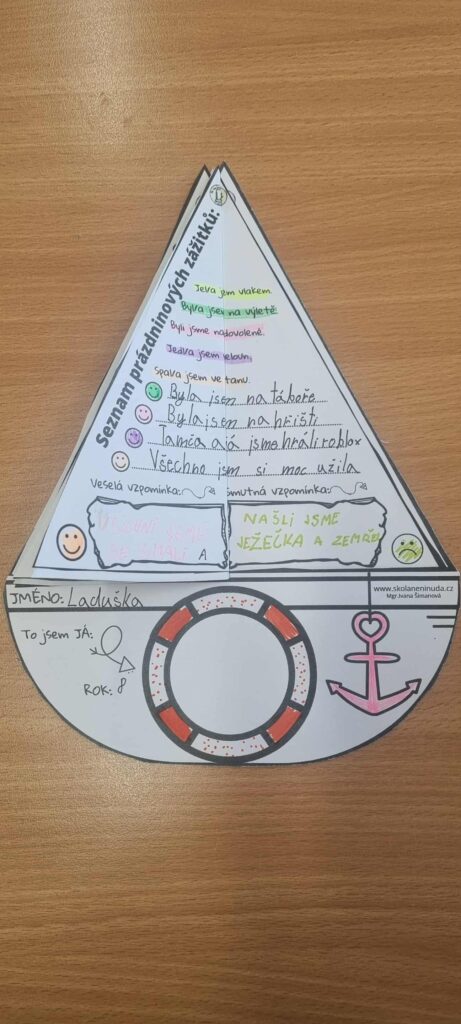 Seznam prázdninových zážitků:
Jela jem vlakem.
Byla jsex na výletě
Byli jsme nadovolené.
Jedla jsem
Spala jsem ve tanu.
Byla jsem na táboře
Byla jsem na hřišti
Tamča a já jsme hráli roblox
Všechno jsm si moc užila
Veselá vzpomínka:
smutná vzpomínka:
JSME
SE SMÁLI A
NAŠLI JSME
JEŽEČKA A ZEMŘEL
JMÉNO: Laduška
www.skolaneninuda.cz
Mgr.Ivana Šimanová
To jsem JÁ:
ROK: 8